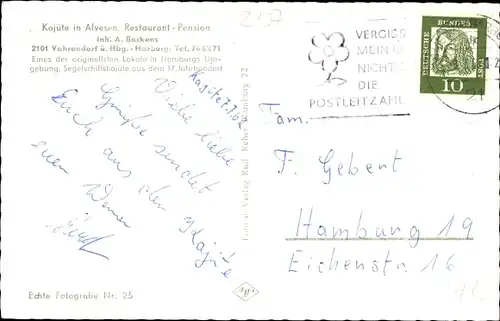 2157
Kajüte in Alvesen, Restaurant - Pension
Inh. A. Backens
2101 Vahrendorf ü. Hbg.-Harburg, Tel. 765271
Eines der originellsten Lokale in Hamburgs Um-
gebung, Segelschiffskajüte aus dem 17. Jahrhundert
VERGISS
MEIN
NICHT
DIE
POSTLEITZAHL
DEUTSCHE
BUNDES
10
21
Kajüte 7.7.62
Viele liebe
Grüße sendet
Euch aus der Kajüte
euer Werner
Fam.
F. Gebert
Hamburg 19
Eichenstr. 16
Verlag Rud. Reher Hamburg 22
Echte Fotografie Nr. 25